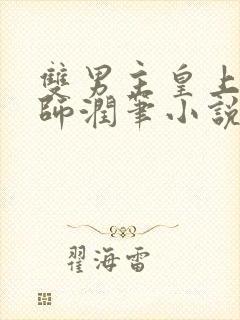 雙男主皇上
師潤筆小說
翟海雷